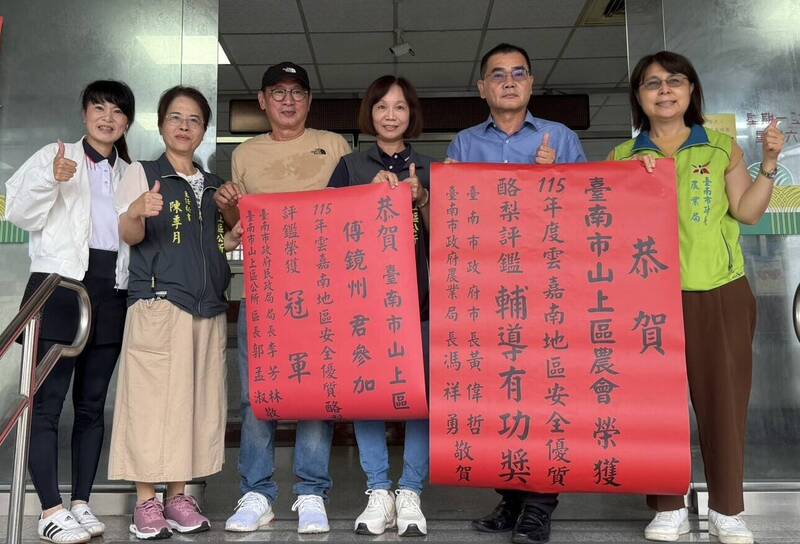 恭賀
臺南市山上區農會 榮獲
115年度雲嘉南地區安全優質
酪梨評鑑 輔導有功獎
臺南市政府市長黃偉哲
臺南市政府農業局長馮祥勇敬賀
恭賀 臺南市山上區
傅鏡州 君參加
115年雲嘉南地區安全優質酪
評鑑榮獲 冠軍
臺南市政府民政局局長李芳林敬
臺南市山上區公所 區長郭孟淑
陳季月
臺南市政府
農業局
THE NORTH FACE